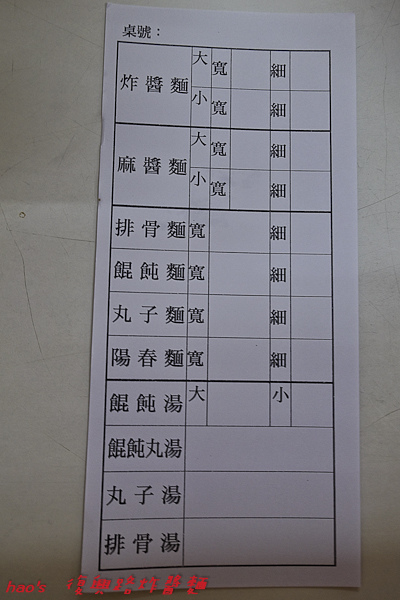 桌號：
炸醬麵 大 寬 細
小 寬 細
麻醬麵 大 寬 細
小 寬 細
排骨麵 寬 細
餛飩麵 寬 細
丸子麵 寬 細
陽春麵 寬 細
餛飩湯 大 小
餛飩丸湯
丸子湯
排骨湯
hao's 復興路炸醬麵